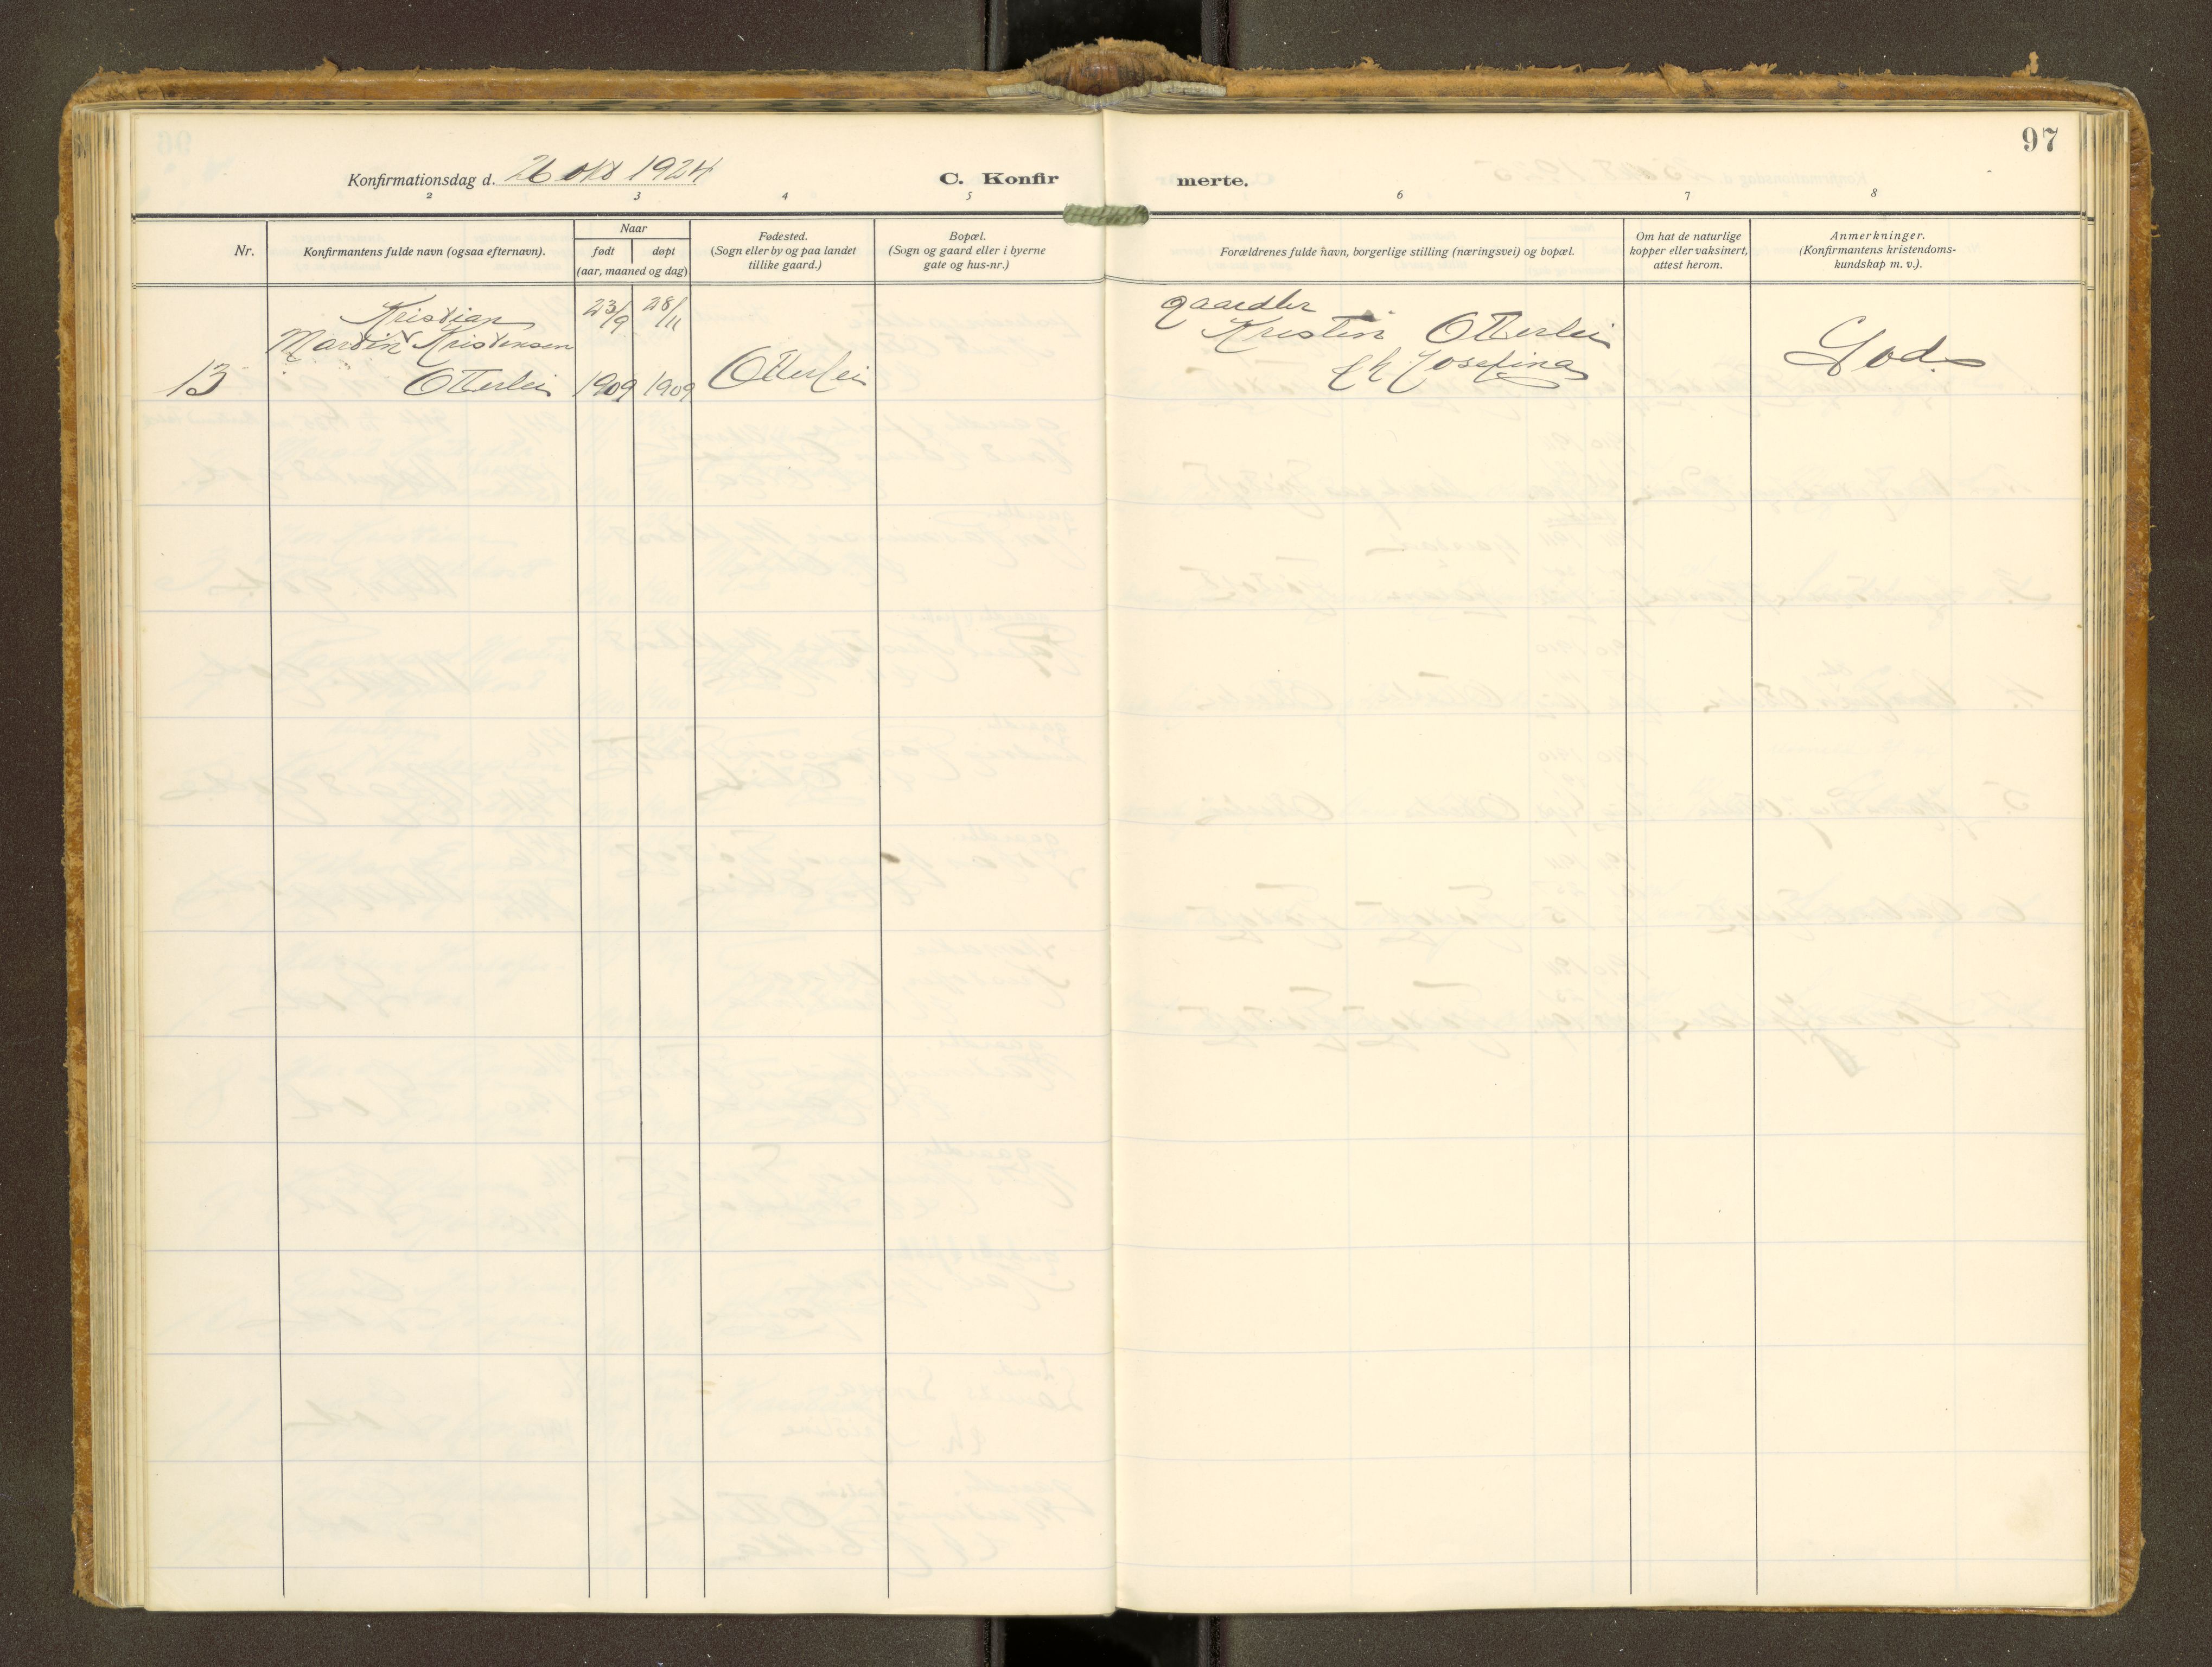 97
Konfirmationsdag d. 26 okt 1924
C. Konfirmerte.
2 3 4 5 6 7 8
Nr.
Konfirmantens fulde navn (ogsaa efternavn).
Naar
født døpt
(aar, maaned og dag)
Fødested.
(Sogn eller by og paa landet
tillike gaard.)
Bopæl.
(Sogn og gaard eller i byerne
gate og hus-nr.)
Forældrenes fulde navn, borgerlige stilling (næringsvei) og bopæl.
Om hat de naturlige
kopper eller vaksinert,
attest herom.
Anmerkninger.
(Konfirmantens kristendoms-
kundskap m. v.).
13
Kristian
Martin Kristensen
Otterlei
23/9 28/11
1909 1909
Otterlei
gaardbr
Kristen Otterlei
Josefina
God.